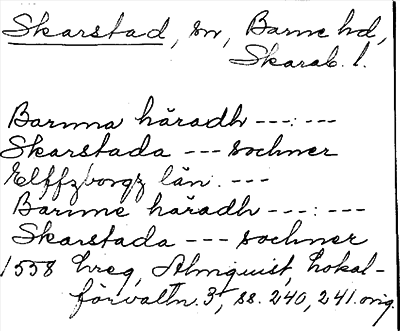 Skarstad, sn, Barne hd,
Skarab. l.
Barnna häradh ---:---
Skarstada --- sochner
Elffzborgz län. ---
Barnne häradh ---:---
Skarstada --- sochner
1558 hreg, Almquist, Lokal-
förvaltn. 3, ss. 240, 241. orig.